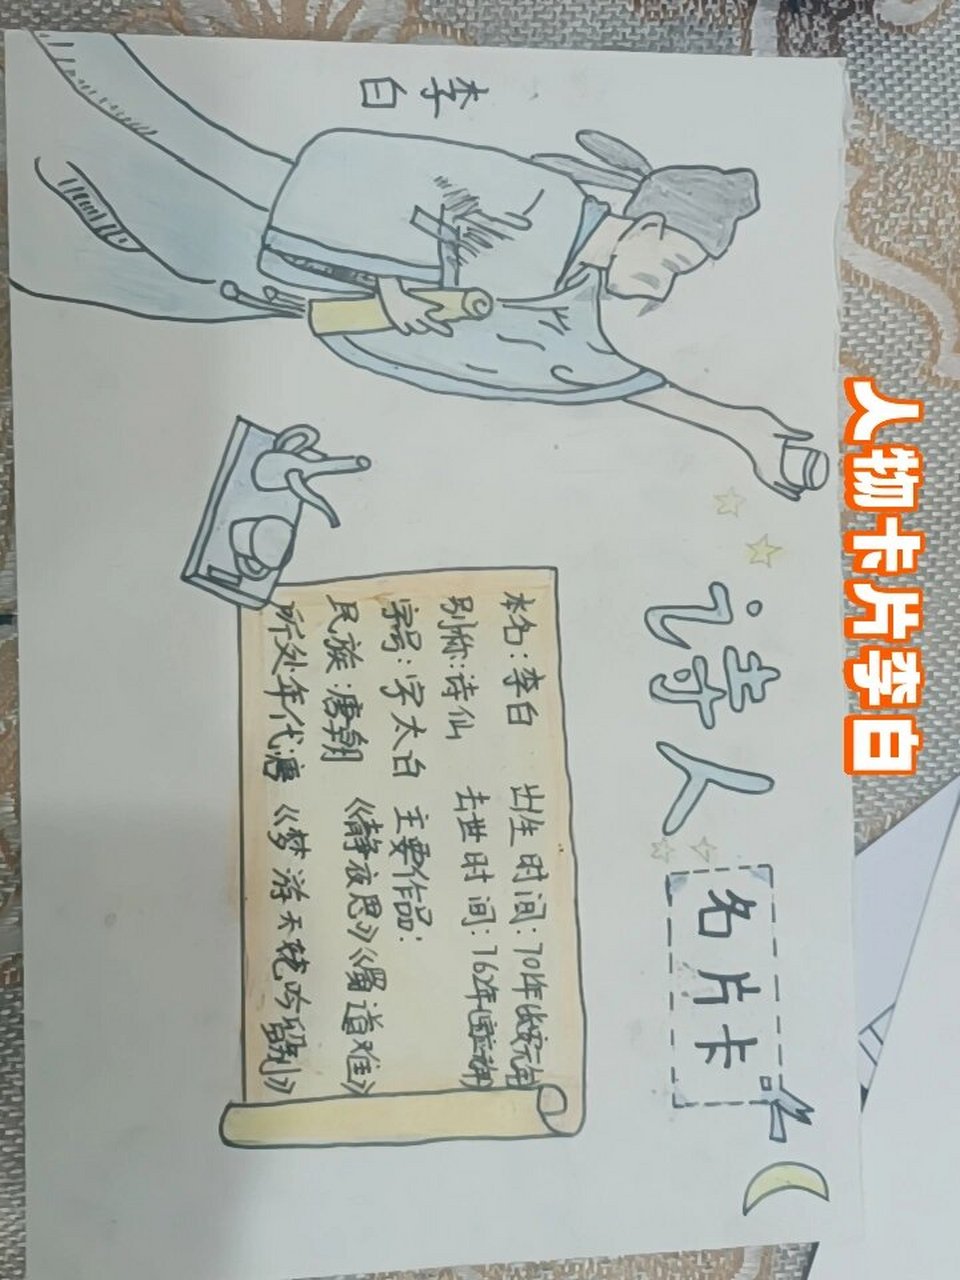 人物卡片李白
诗人
名片卡
李白
本名:李白
别称:诗仙
字号:字太白
民族:唐朝
所处年代唐
出生时间:701年(长安元年)
去世时间:762年(宝应元年)
主要作品:
《静夜思》《蜀道难》
《梦游天姥吟留别》